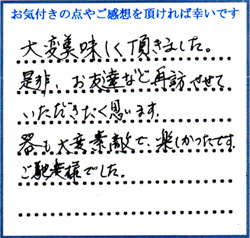 お気付きの点やご感想を頂ければ幸いです
大変美味しく頂きました。
是非、お友達など再訪させて
いただきたく思います。
器も大変素敵で、楽しかったです。
ご馳走様でした。